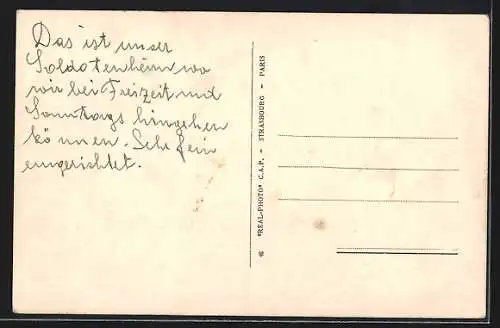 Das ist unser
Soldatenheim wo
wir bei Freizeit und
Sonntags hingehen
können. Sehr fein
eingerichtet.
"REAL-PHOTO" C.A.P. - STRASBOURG - PARIS